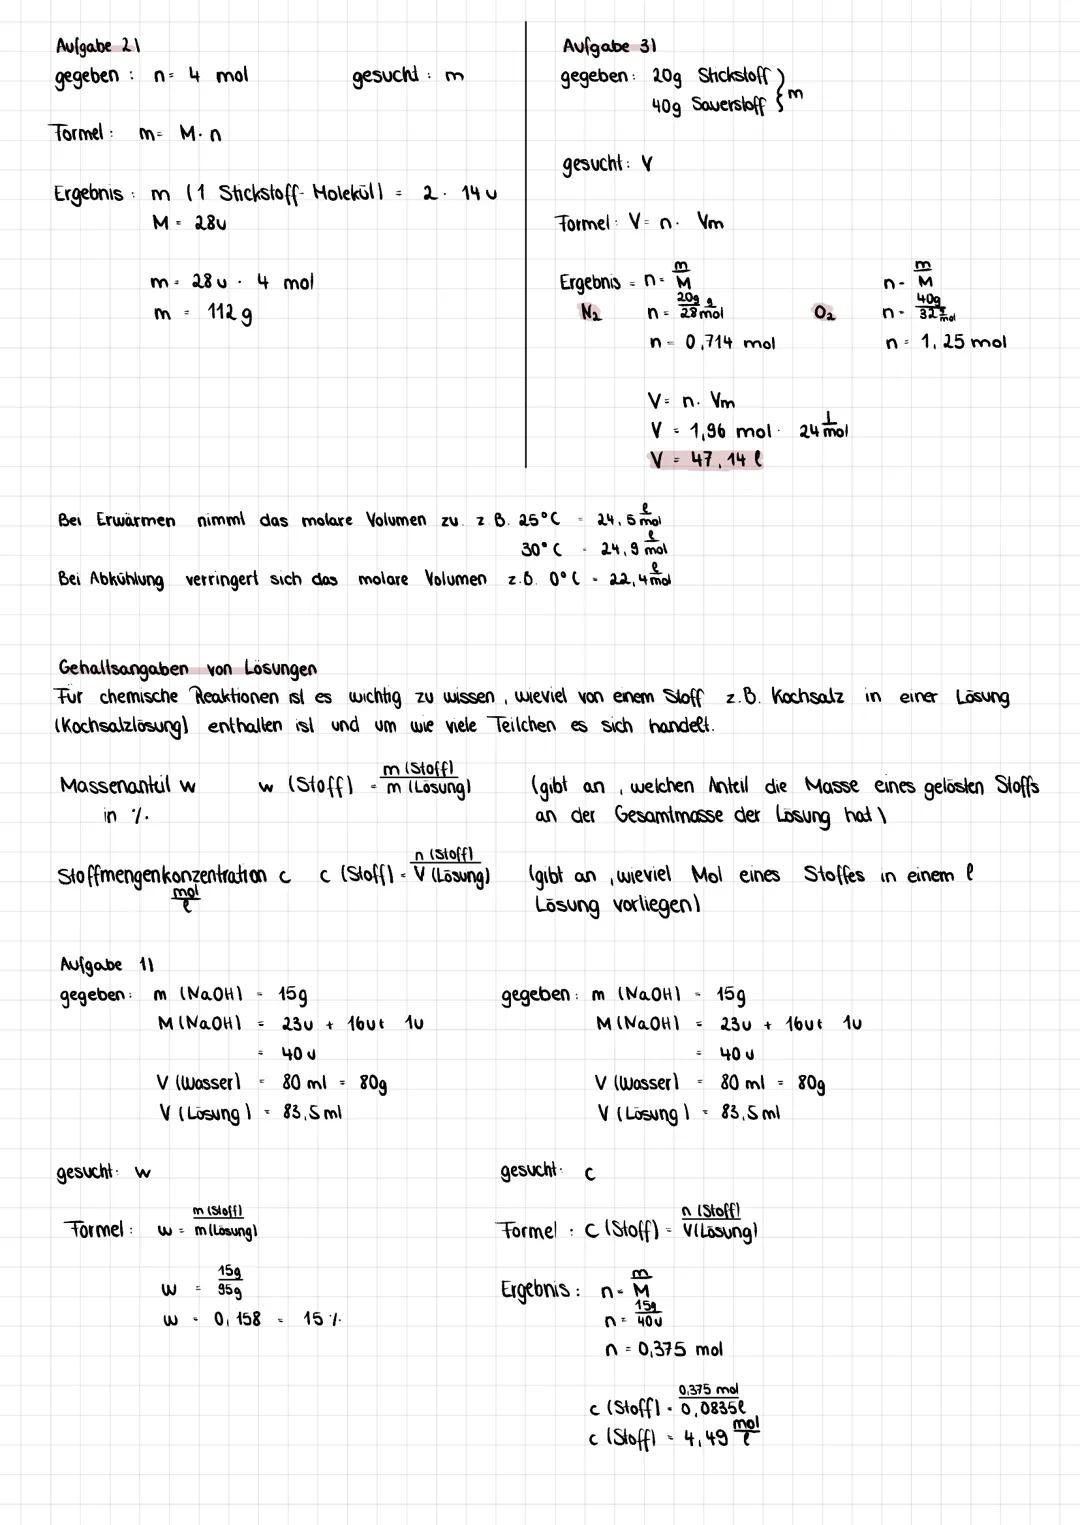 Aufgabe 2)
gegeben : n = 4 mol gesucht : m
Formel : m = M · n
Ergebnis : m (1 Stickstoff-Molekül) = 2 · 14 u
M = 28u
m = 28 u · 4 mol
m = 112 g
Aufgabe 3)
gegeben: 20g Stickstoff } m
40g Sauerstoff
gesucht: V
Formel : V = n · Vm
Ergebnis = n = m/M n = m/M
N₂ n = 20g / 28 g/mol O₂ n = 40g / 32 g/mol
n = 0,714 mol n = 1,25 mol
V = n · Vm
V = 1,96 mol · 24 l/mol
V = 47,14 l
Bei Erwärmen nimmt das molare Volumen zu. z.B. 25°C = 24,5 l/mol
30°C = 24,9 l/mol
Bei Abkühlung verringert sich das molare Volumen z.B. 0°C = 22,4 l/mol
Gehaltsangaben von Lösungen
Für chemische Reaktionen ist es wichtig zu wissen, wieviel von einem Stoff z.B. Kochsalz in einer Lösung
(Kochsalzlösung) enthalten ist und um wie viele Teilchen es sich handelt.
Massenanteil w w (Stoff) = m (Stoff) / m (Lösung) (gibt an, welchen Anteil die Masse eines gelösten Stoffs
in % an der Gesamtmasse der Lösung hat)
Stoffmengenkonzentration c c (Stoff) = n (Stoff) / V (Lösung) (gibt an, wieviel Mol eines Stoffes in einem l
mol/l Lösung vorliegen)
Aufgabe 1)
gegeben: m (NaOH) = 15g
M (NaOH) = 23u + 16u + 1u
= 40 u
V (Wasser) = 80 ml = 80g
V (Lösung) = 83,5 ml
gesucht: w
Formel : w = m (Stoff) / m (Lösung)
w = 15g / 95g
w = 0,158 = 15 %
gegeben: m (NaOH) = 15g
M (NaOH) = 23u + 16u + 1u
= 40 u
V (Wasser) = 80 ml = 80g
V (Lösung) = 83,5 ml
gesucht: c
Formel : c (Stoff) = n (Stoff) / V (Lösung)
Ergebnis : n = m/M
n = 15g / 40u
n = 0,375 mol
c (Stoff) = 0,375 mol / 0,0835 l
c (Stoff) = 4,49 mol/l